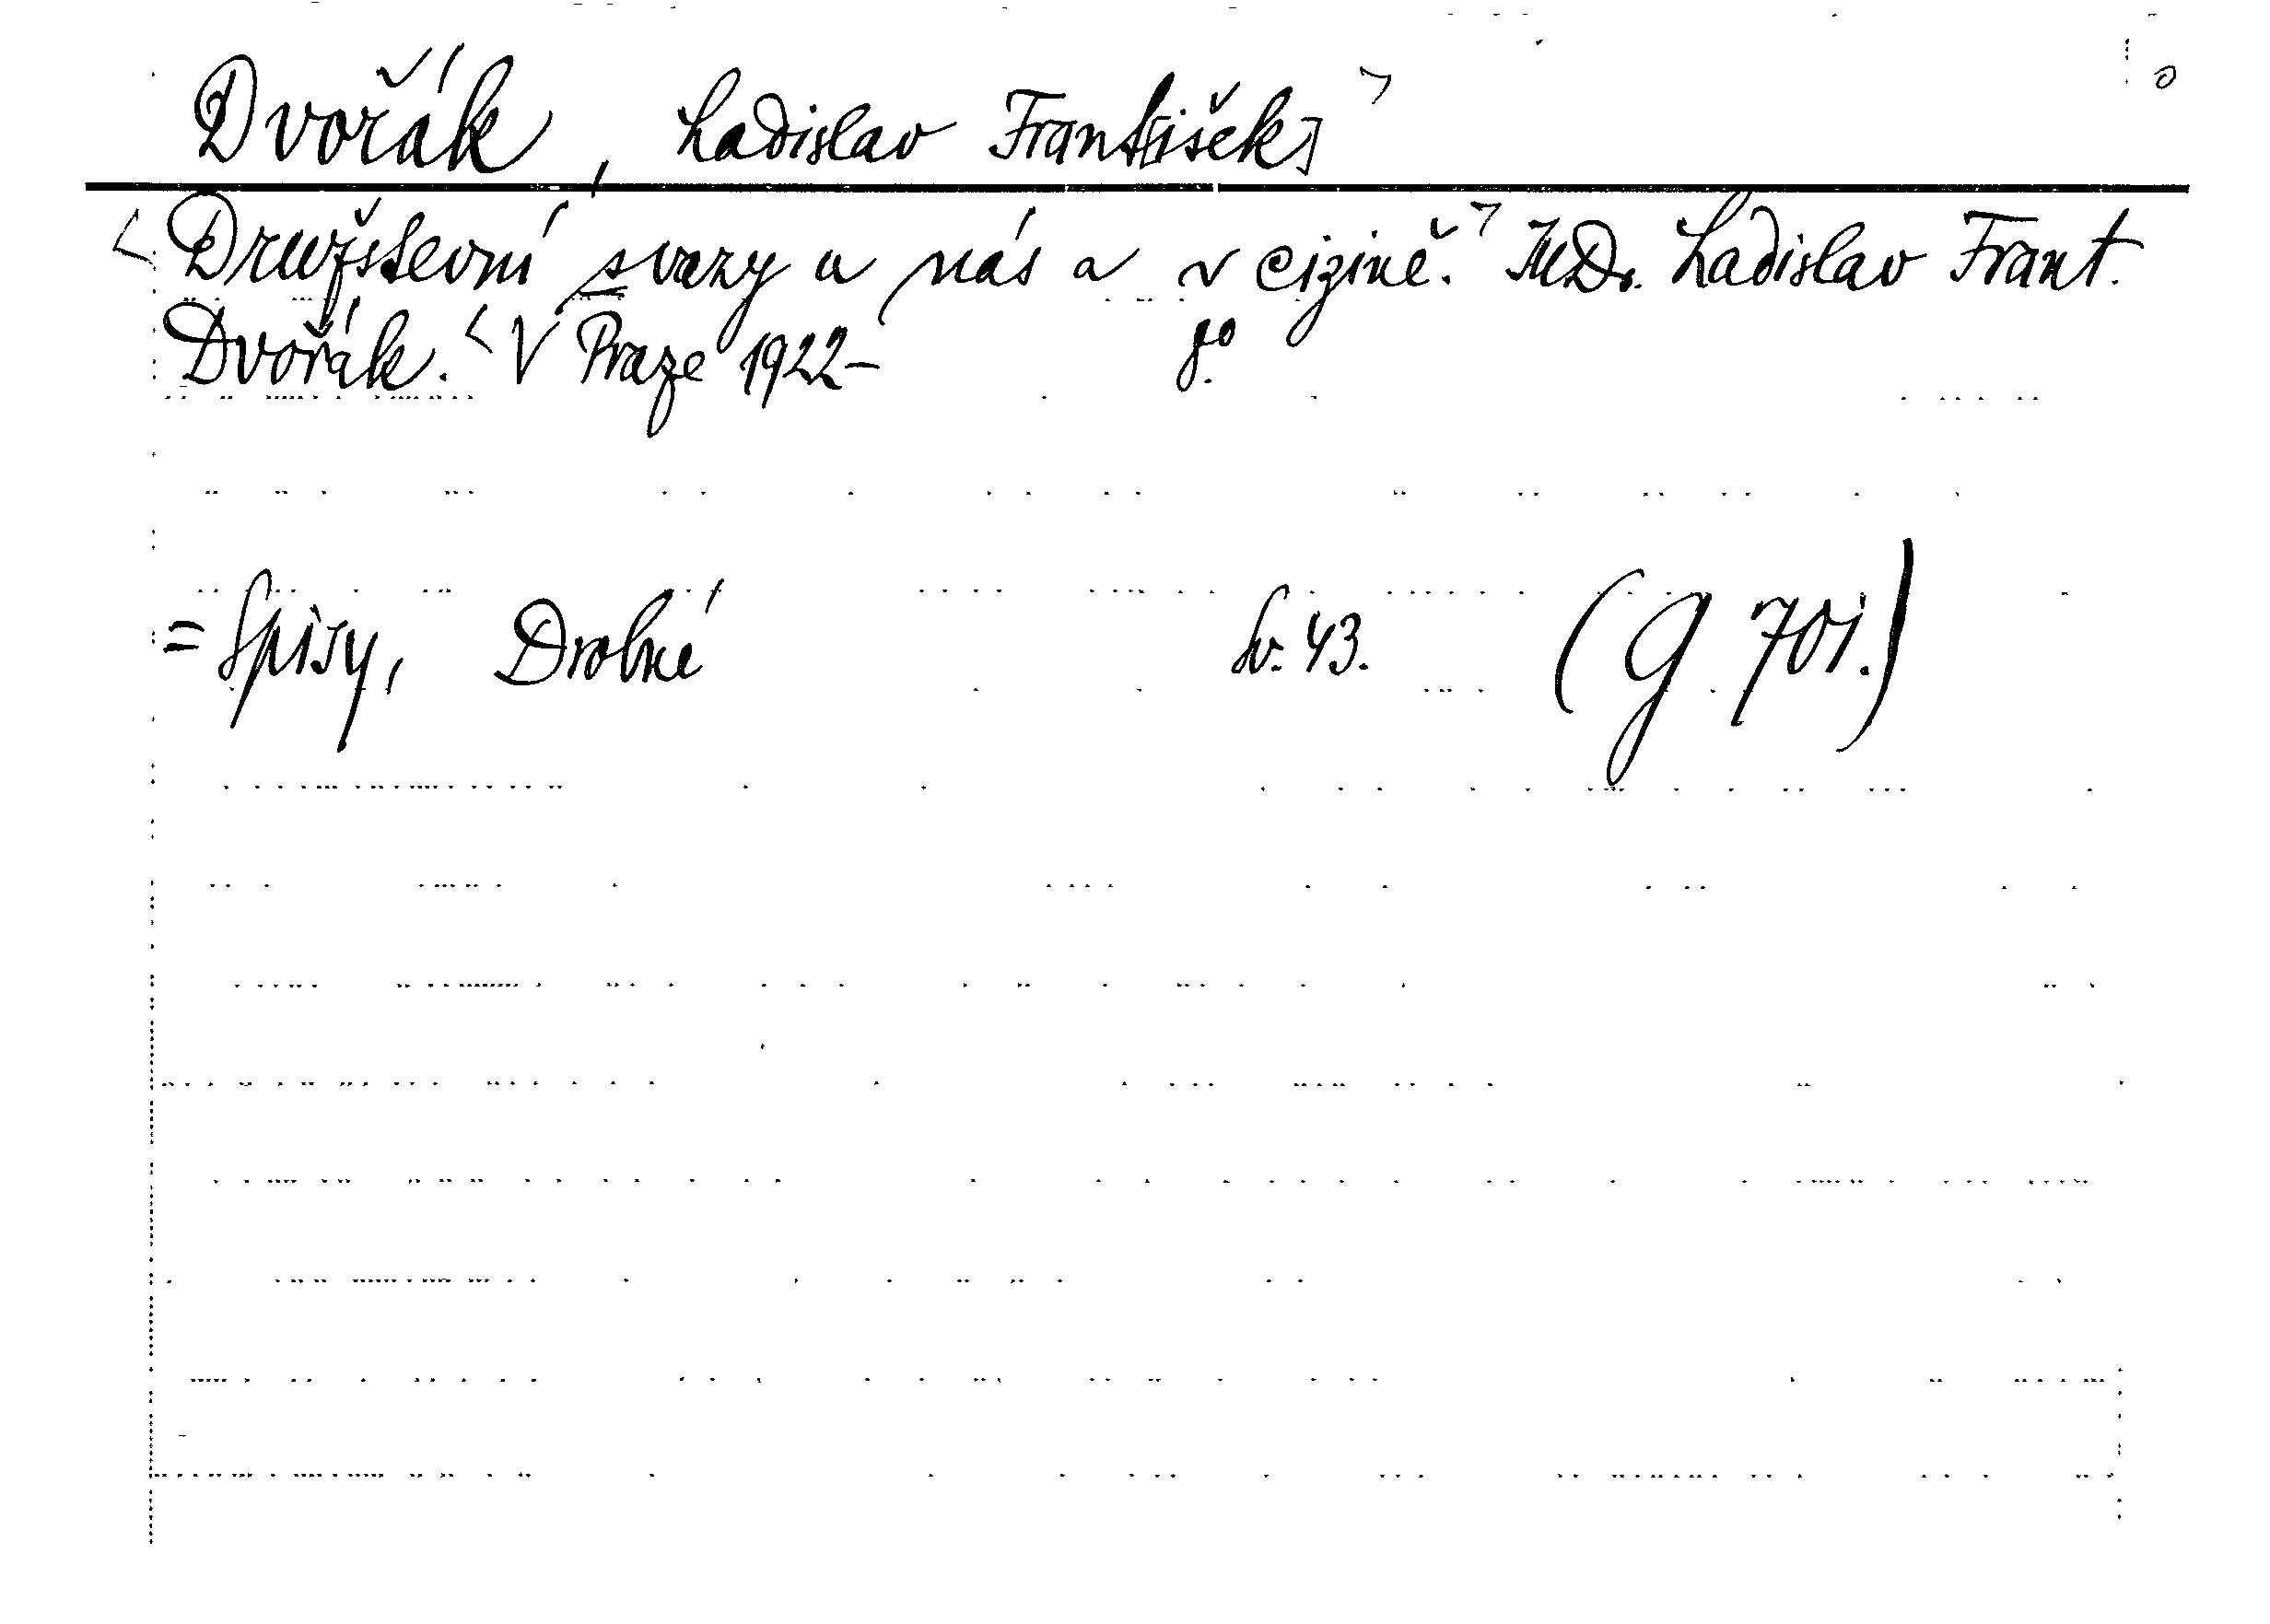 Dvořák, Ladislav Frant[išek]
Družstevní svazy u nás a v cizině. JUDr. Ladislav Frant.
Dvořák. V Praze 1922- 8°.
= Spisy, Drobné Sv. 43. (G 701.)